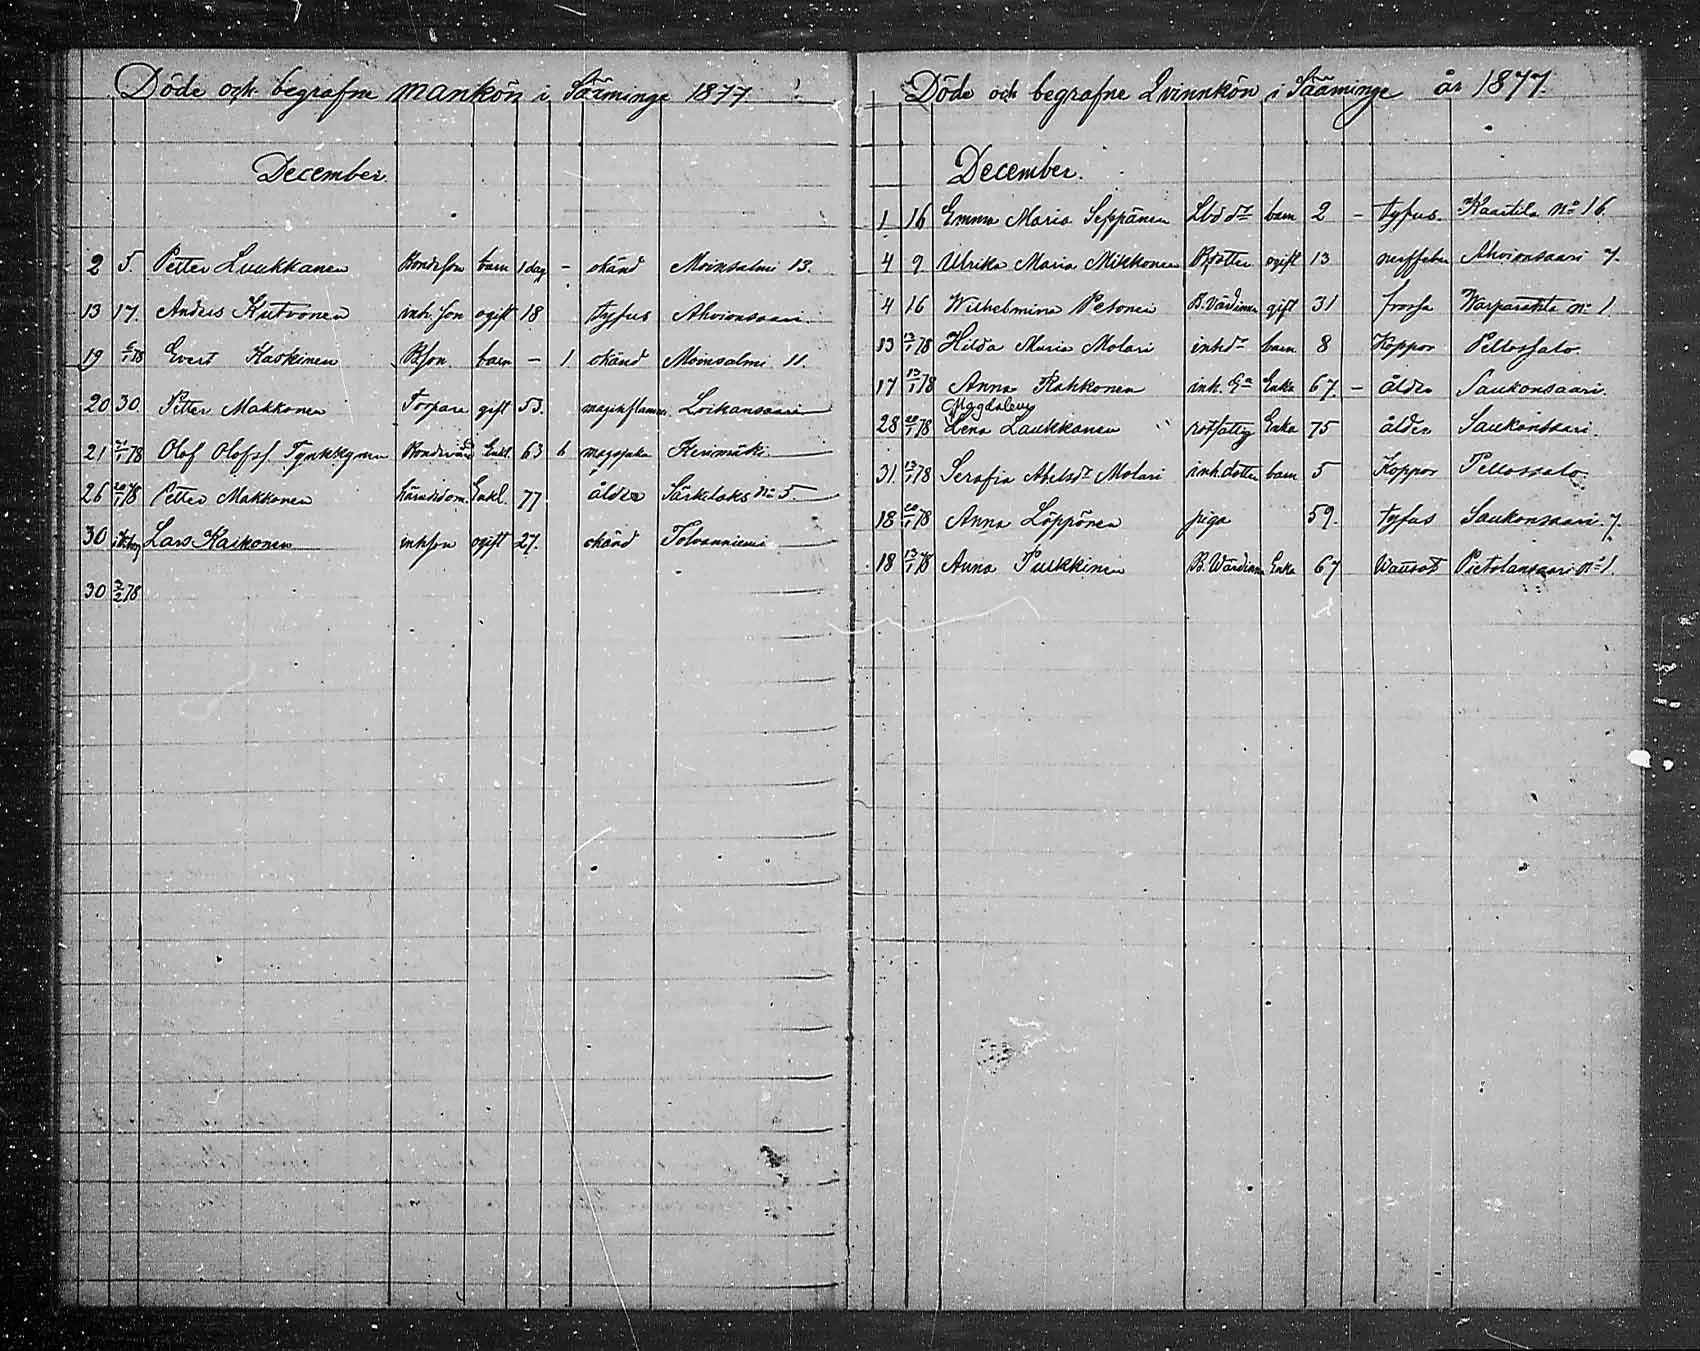 Döde och begrafne mankön i Sääminge 1877
December.
2 5. Petter Luukkanen Bondeson barn 1 dag - okänd Moinsalmi 13.
13 17. Anders Kutvonen inh. son ogift 18 tyfus Ahvionsaari
19 6/1 78 Evert Kaskinen Bson. barn - 1 okänd Moinsalmi 11.
20 30. Petter Makkonen Torpare gift 53. Loikansaari
21 /1 78 Olof Olofss Tynkkynen Enkl. 63 6 magsjuka Kerimäki
26 20/1 78 Petter Makkonen Enkl. 77 ålder Särkilaks No 5.
30 Lars Kaikonen inhson ogift 27. okänd Tolvanniemi
30 3/2 78
Döde och begrafne Qvinnkön i Sääminge år 1877.
December.
1 16 Emma Maria Seppänen Lbd dr barn 2 - tyfus. Kaartila No 16.
4 9 Ulrika Maria Mikkonen Bdotter ogift 13 nerffeber Ahvionsaari 7.
4 16 Wilhelmina Petonen B. Värdinna gift 31 frossa Warparanta No 1.
13 13/1 78 Hilda Maria Molari inhdr barn 8 Koppor Pellossalo.
17 13/1 78 Anna Rahkonen inh. Ea Enka 67. - ålder Saukonsaari.
Magdalena
28 20/1 78 Lena Laukkanen " rotfattig Enka 75 ålder Saukonsaari.
31. 13/1 78 Serafia Abelsdr Molari inh.dotter barn 5 Koppor Pellossalo
18 20/1 78 Anna Löppönen piga 59. tyfus Saukonsaari. 7.
18 13/1 78 Anna Pulkkinen B. Wärdinna Enka 67 Wattsot Pietolansaari No 1.